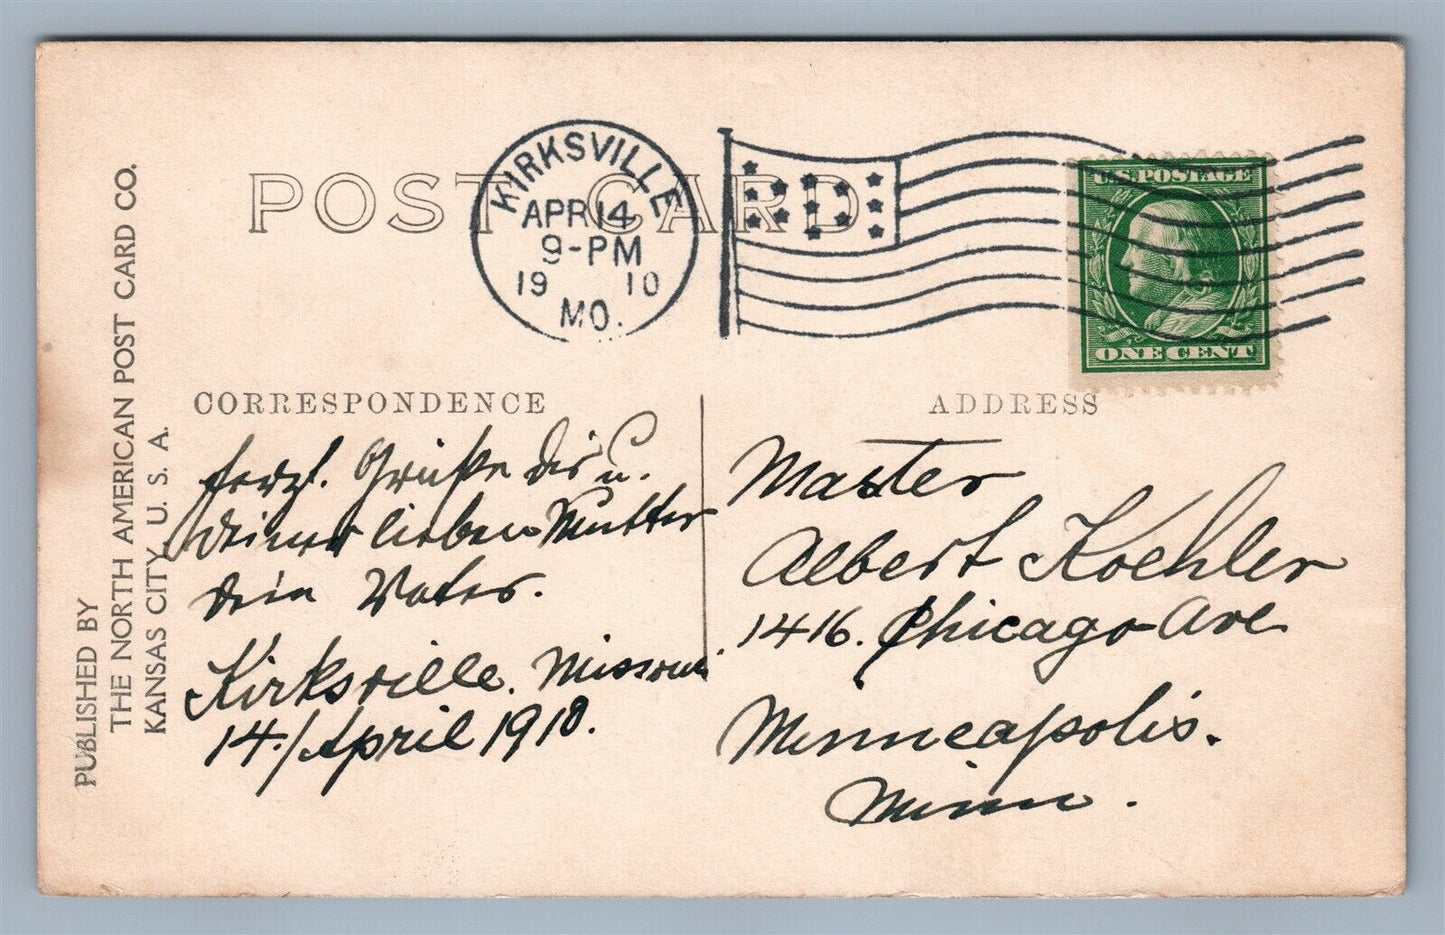 POST CARD
KIRKSVILLE
APR 14
9-PM
19 10
MO.
U.S. POSTAGE
ONE CENT
PUBLISHED BY
THE NORTH AMERICAN POST CARD CO.
KANSAS CITY, U. S. A.
CORRESPONDENCE
Herzl. Grüße Dir u.
Deiner lieben Mutter
Dein Vater.
Kirksville. Missouri.
14./April 1910.
ADDRESS
Master
Albert Koehler
1416. Chicago Ave
Minneapolis.
Minn.